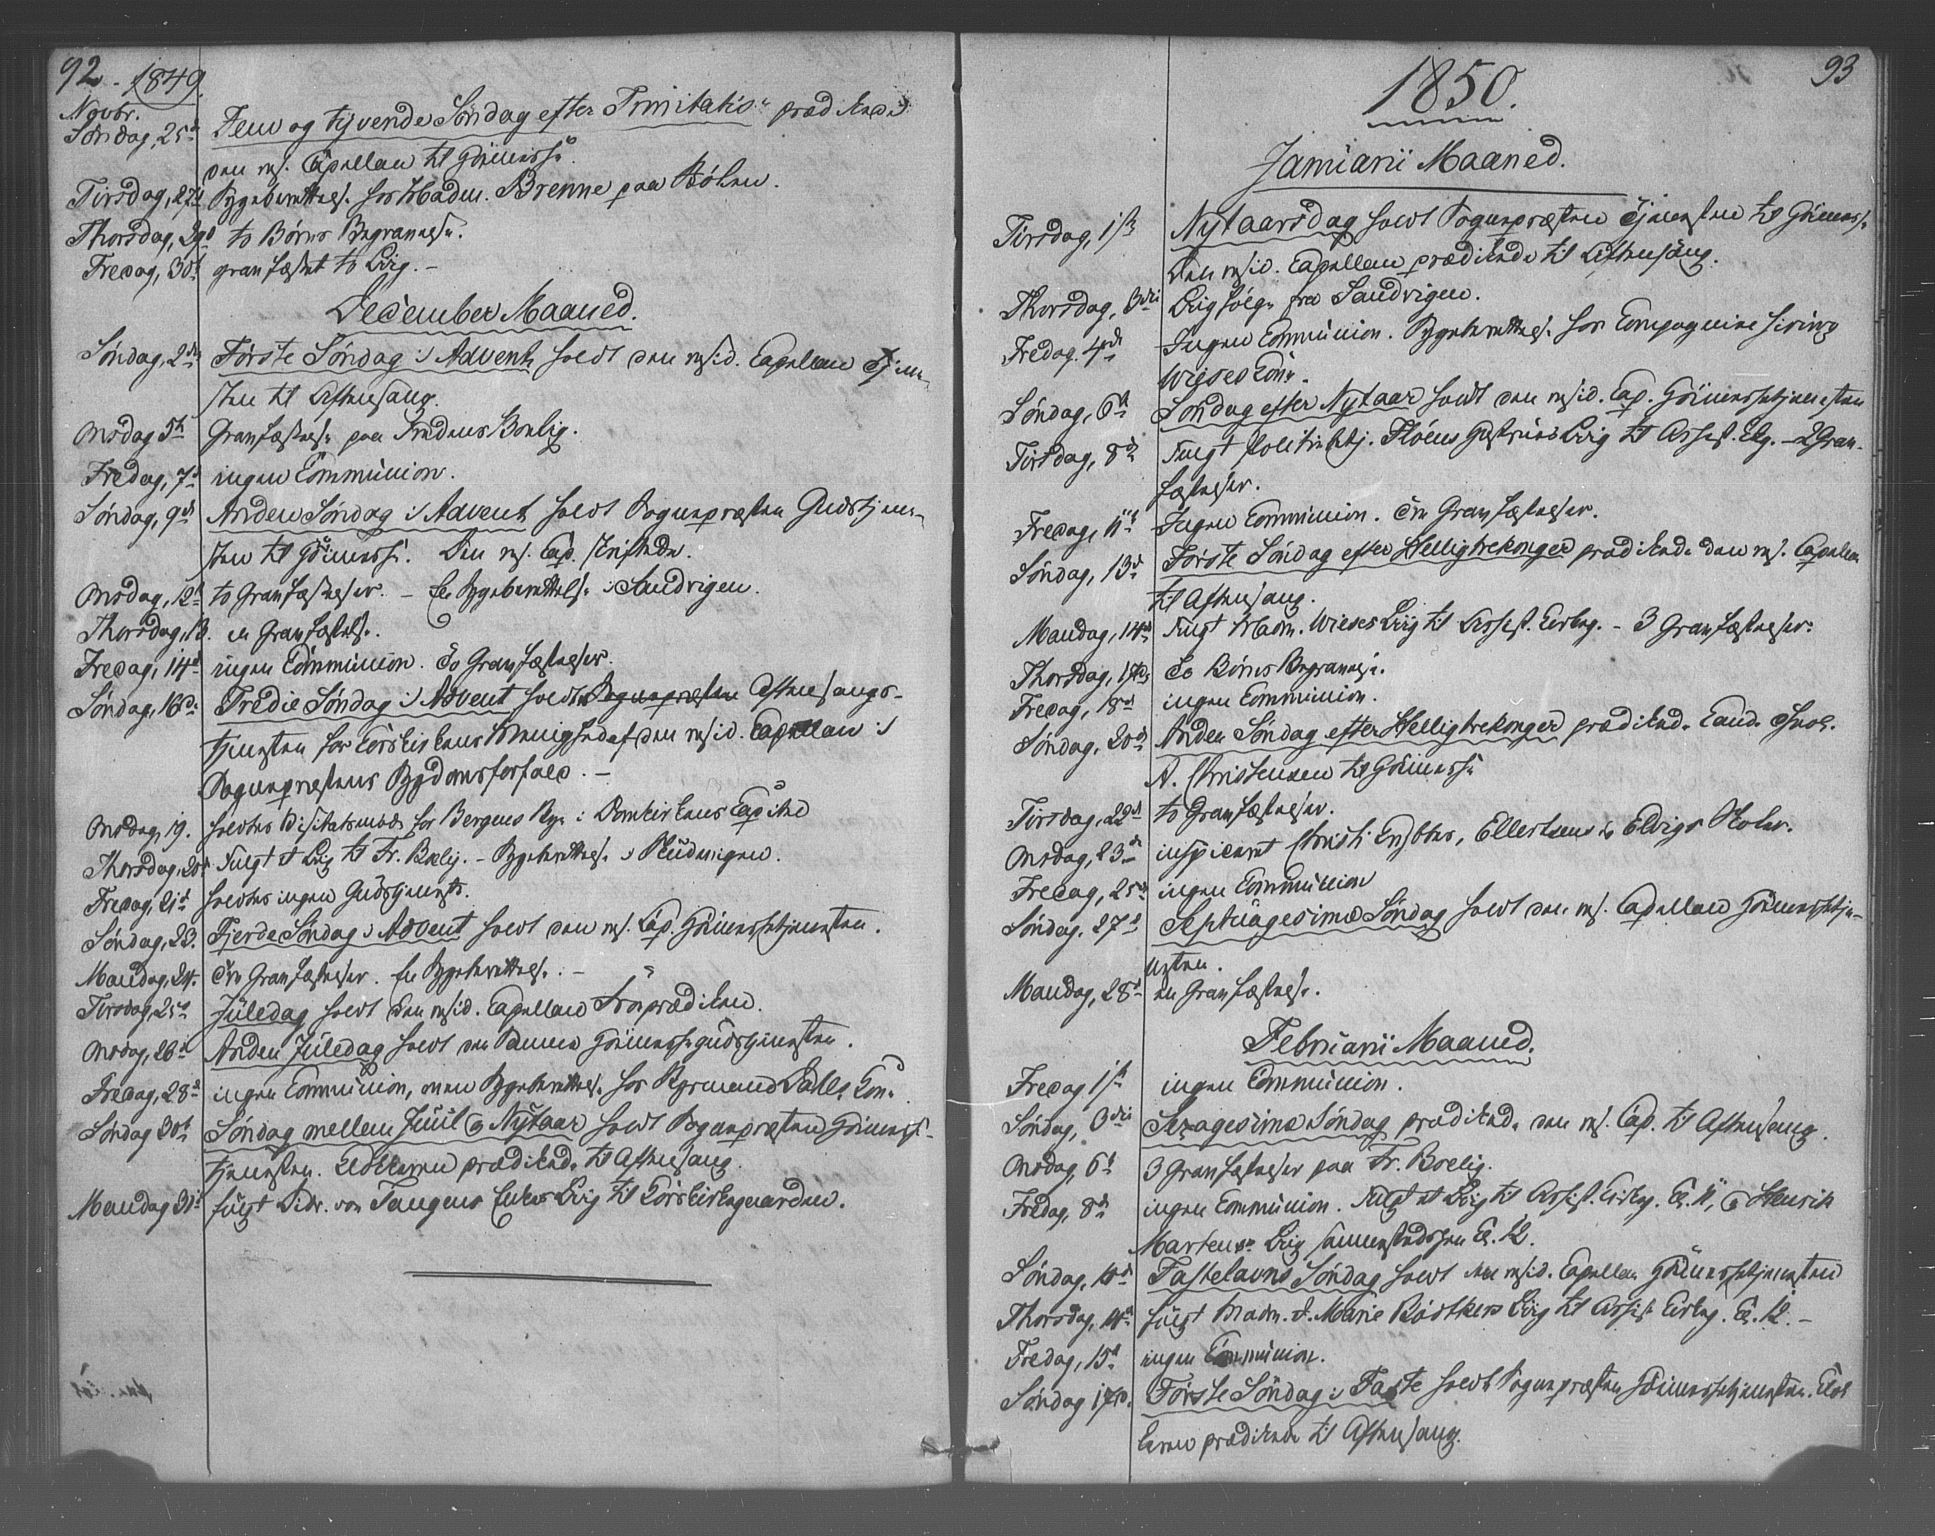 92. 1849.
Novbr.
Søndag, 25de Fem og tyvende Søndag efter Trinitatis prædikede
den res. Capellan til Höimesse.
Tirsdag, 27d Sygeberettelse hos Madm. Brenne paa Nøhen.
Thorsdag, 29d to Børns Begravelse.
Fredag, 30t gravfæstet to Liig. –
December Maaned.
Søndag, 2den Første Søndag i Advent holdt den resid. Capellan Tjene-
sten til Aftensang.
Onsdag 5te Gravfæstelse paa Fredens Boelig.
Fredag, 7d ingen Communion.
Søndag, 9d Anden Søndag i Advent holdt Sognepræsten Gudstjene-
sten til Höimesse. Den res. Cap. skriftede.
Onsdag, 12t to Gravfæstelser. – En Sygeberettelse i Sandvigen.
Thorsdag, 13. en Gravfæstelse.
Fredag, 14d ingen Communion. To Gravfæstelser.
Søndag, 16de Tredie Søndag i Advent holdtes Sognepræsten Aftensangs-
tjenesten for Korskirkens Menighed af den resid. Capellan i
Sognepræstens Sygdomsforfald. –
Onsdag, 19. holdtes Visitatsmøde for Bergens By i Domkirkens Capitel
Thorsdag, 20de fulgt et Liig til Fr. Boelig. – Sygeberettelse i Skudevigen.
Fredag, 21d holdtes ingen Gudstjeneste.
Søndag, 23. Fjerde Søndag i Advent holdt den res. Cap. Höimessetjenesten.
Mandag, 24. Tre Gravfæstelser. En Sygeberettelse. –
Tirsdag, 25d Juledag holdt den resid. Capellan Froprædiken.
Onsdag, 26d Anden Juledag holdt den Samme Höimessegudstjenesten.
Fredag, 28d ingen Communion, men Sygeberettelse hos Styrmand Kone.
Søndag 30t Søndag mellem Juul og Nytaar holdt Sognepræsten Höimesse-
tjenesten. Klokkeren prædikede til Aftensang.
Mandag 31d fulgt Didr. von Tangens Enkes Liig til Korskirkegaarden.
93
1850.
Januarii Maaned.
Tirsdag, 1ste Nytaarsdag holdt Sognepræsten Tjenesten til Höimesse.
Den resid. Capellan prædikede til Aftensang.
Thorsdag, 3die Liigfölge fra Sandvigen.
Fredag. 4de Ingen Communion. Sygeberettelse hos Compagniechirurg
Wieses Kone.
Søndag, 6te Søndag efter Nytaar holdt den resid. Cap. Höimessetjenesten
Tirsdag, 8de Fulgt Liig til Assist. Kg. – 2 Grav-
fæstelser.
Fredag, 11te Ingen Communion. Tre Gravfæstelser.
Søndag, 13d Første Søndag efter Helligtrekonger prædikede den res. Capellan
til Aftensang.
Mandag, 14de Fulgt Madm. Wieses Liig til Assist. Kirkeg. – 3 Gravfæstelser.
Thorsdag, 17de To Børns Begravelse.
Fredag, 18de ingen Communion.
Søndag, 20de Anden Søndag efter Helligtrekonger prædikede Cand. Theol.
A. Christensen til Höimesse
Tirsdag, 22de to Gravfæstelser.
Onsdag, 23de inspiceret Christi Krybbes, Ellertsens & Elvigs Skoler.
Fredag, 25de ingen Communion
Søndag, 27d Septuagesimæ Søndag holdt den res. Capellan Höimessetje-
nesten.
Mandag, 28d en Gravfæstelse.
Februarii Maaned.
Fredag 1ste ingen Communion.
Søndag, 3die Sexagesimæ Søndag prædikede den res. Cap. til Aftensang.
Onsdag, 6t 3 Gravfæstelser paa Fr. Boelig.
Fredag, 8de ingen Communion. Fulgt et Liig til Assist. Kirkeg. Kl. 11, & Henrik
Martens Liig sammestedshen Kl. 12.
Søndag, 10d Fastelavns Søndag holdt den resid. Capellan Höimessetjenesten
Thorsdag, 14de fulgt Madm. Marie Bødtkers Liig til Assist. Kirkeg. Kl. 12. –
Fredag, 15d ingen Communion.
Søndag 17de. Første Søndag i Faste holdt Sognepræsten Höimessetjenesten. Klok
keren prædikede til Aftensang.